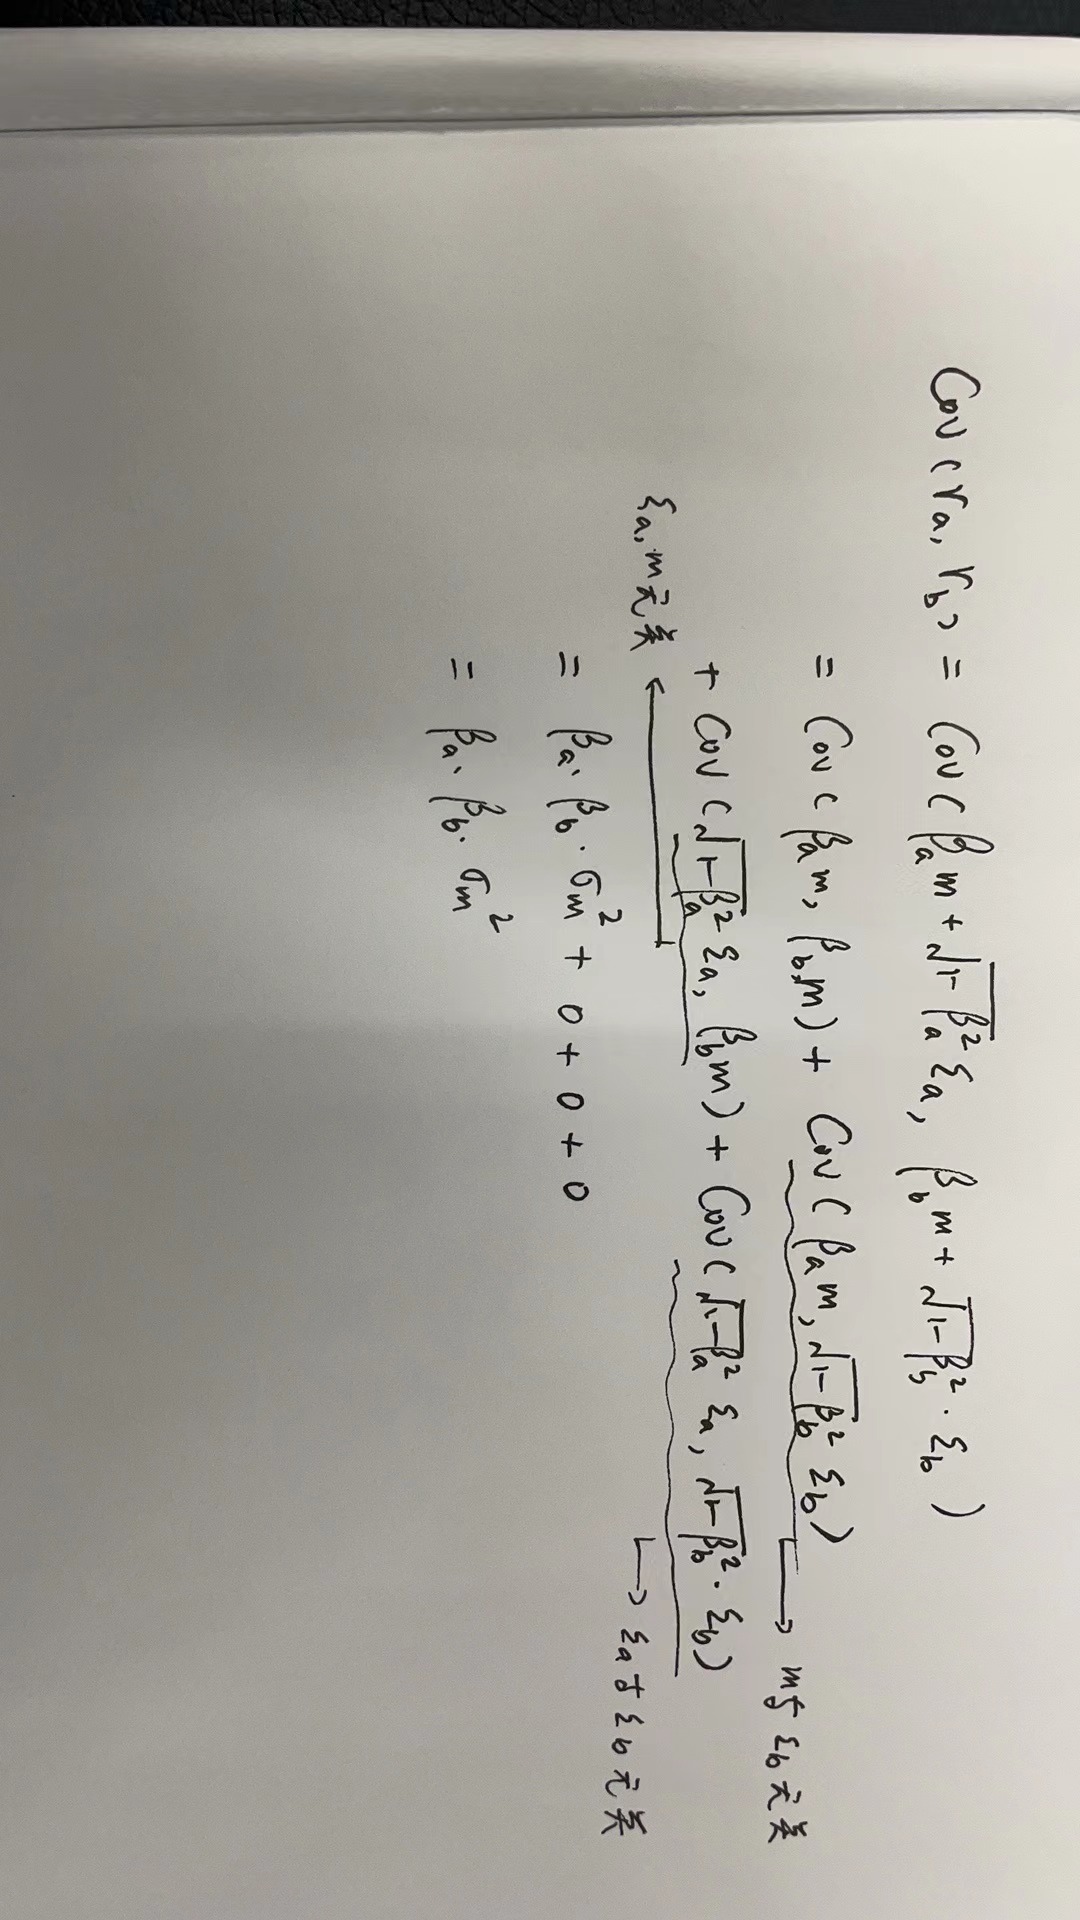 Cov(ra, rb) = Cov(βa m + √1-βa² εa, βb m + √1-βb² · εb)
= Cov(βa m, βb m) + Cov(βa m, √1-βb² εb) → m与εb无关
+ Cov(√1-βa² εa, βb m) + Cov(√1-βa² εa, √1-βb² · εb)
εa, m无关 ←
→ εa与εb无关
= βa · βb · σm² + 0 + 0 + 0
= βa · βb · σm²